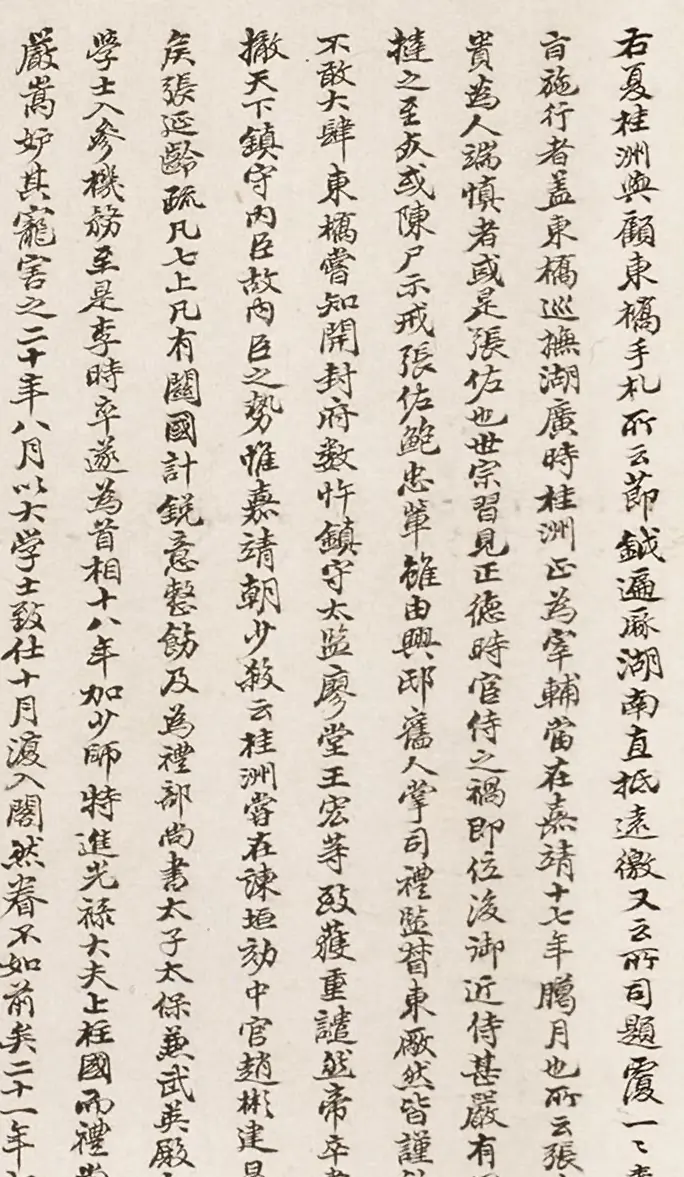 右夏桂洲與顧東橋手札所云節鉞遍厯湖南直抵遠徼又云所司題覆一〻
旨施行者盖東橋巡撫湖廣時桂洲正為宰輔當在嘉靖十七年臈月也所云張
貴為人端慎者或是張佐也世宗習見正徳時宦侍之禍即位後御近侍甚嚴有
撻之至死或陳尸示戒張佐鮑忠軰雖由興邸舊人掌司禮監督東厰然皆謹
不敢大肆東橋嘗知開封府数忤鎮守太監廖堂王宏等致獲重譴然帝卒
撤天下鎮守内臣故内臣之勢惟嘉靖朝少殺云桂洲嘗在諫垣劾中官趙彬建
矦張延齡疏凡七上凡有關國計鋭意整飭及為禮部尚書太子太保兼武英殿
學士入參機務至是李時卒遂為首相十八年加少師特進光祿大夫上柱國而禮
嚴嵩妒其寵害之二十年八月以大学士致仕十月復入閣然眷不如前矣二十一年